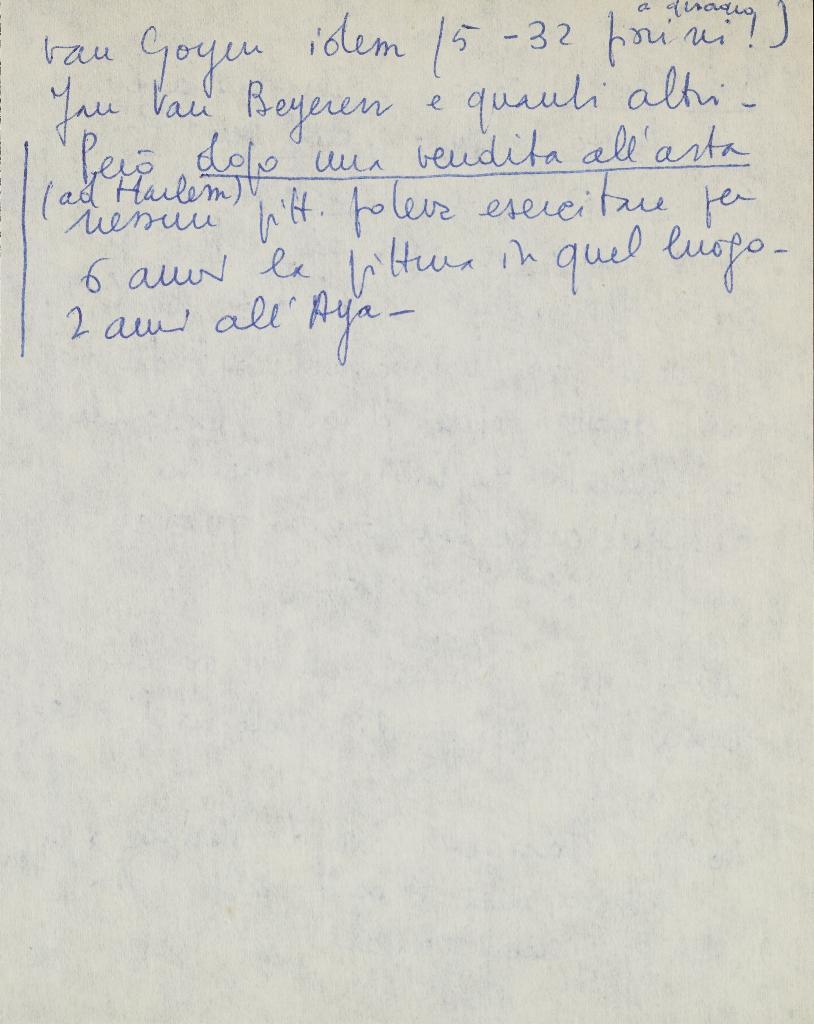 van Goyen idem (5 - 32 fiorini!)
Jan Van Beyeren e quanti altri -
Però dopo una vendita all'asta
(ad Harlem)
nessun pitt. poteva esercitare per
6 anni la pittura in quel luogo -
2 anni all'Aya -